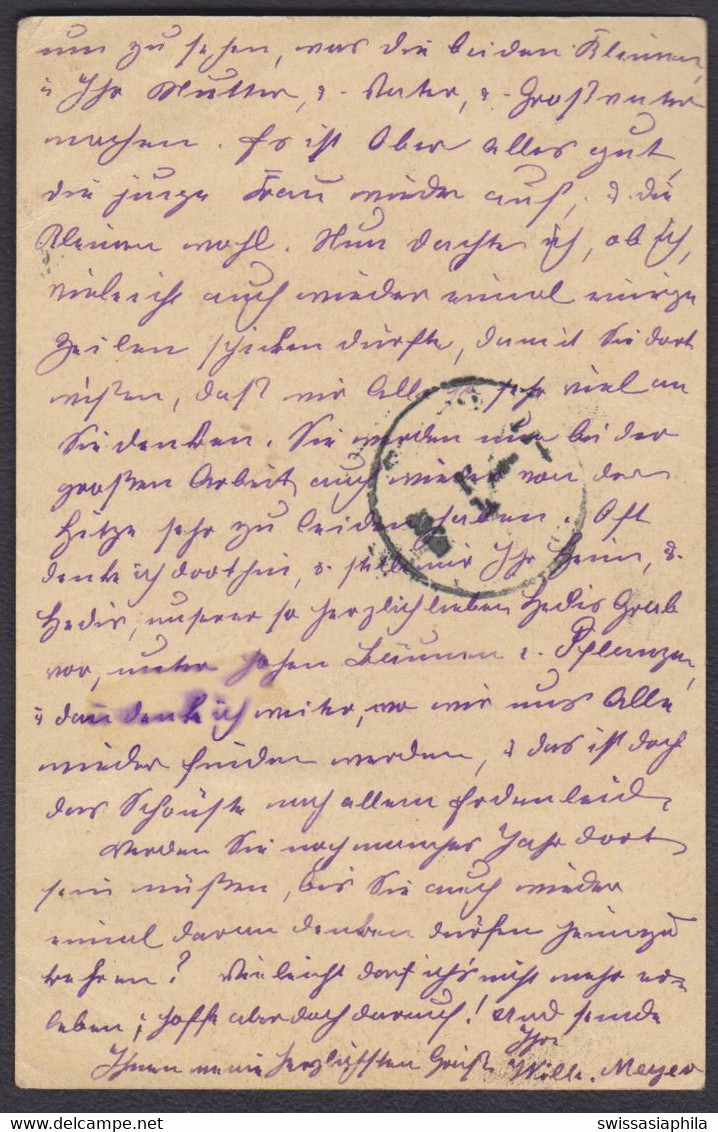 um zu sehen, was die beiden Kleinen,
u Ihr Mutter, u. Vater, u. Großvater
machen. Es ist Aber alles gut,
die junge Frau wieder auf, u die
Kleinen wohl. Nun dachte ich, ob ich,
vieleicht auch wieder einmal einige
Zeilen schicken dürfte, damit Sie dort
wißen, daß wir Alle so sehr viel an
Sie denken. Sie werden nun bei der
großen Arbeit auch wieder von der
Hitze sehr zu leiden haben. Oft
denke ich dorthin, u. stelle mir Ihr Heim, u.
Hedis, unserer so herzlich lieben Hedis Grab
vor, unter hohen Bäumen u. Pflanzen,
u dan denke ich weiter, wo wir uns Alle
wieder finden werden, u das ist doch
das Schönste nach allem Erdenleid,
Werden Sie noch manches Jahr dort
sein müßen, bis Sie auch wieder
einmal daran denken dürfen heimzu
kehren? Vieleicht darf ich's nicht mehr er=
leben, hoffe aber doch darauf! Und sende
Ihnen meine herzlichsten Grüße Ihre
Meyer
swissasiaphila